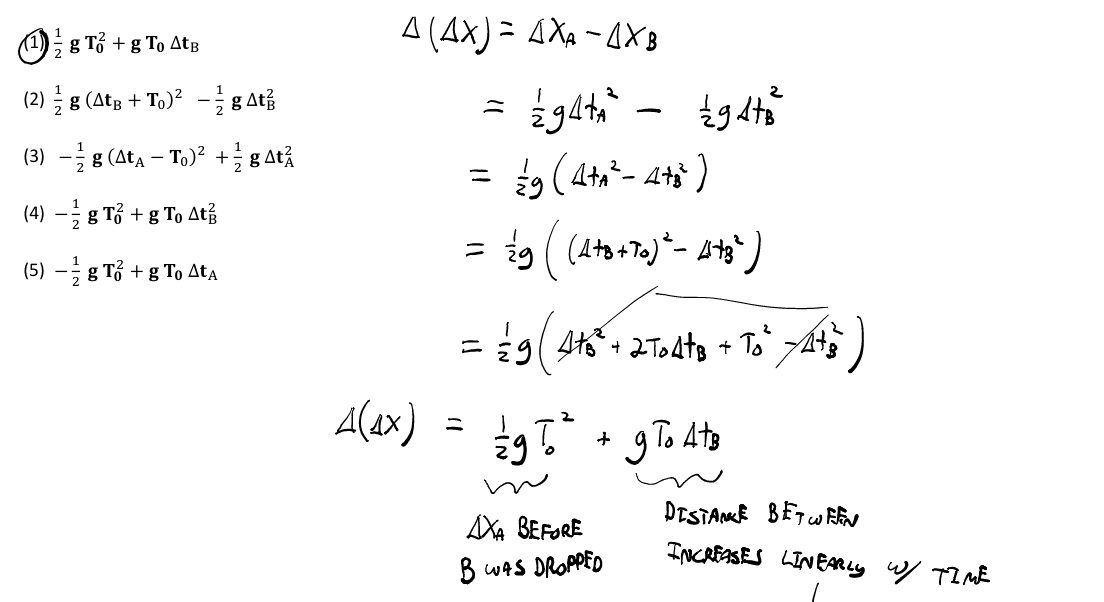 (1) ½ g T₀² + g T₀ Δt_B
(2) ½ g (Δt_B + T₀)² − ½ g Δt_B²
(3) −½ g (Δt_A − T₀)² + ½ g Δt_A²
(4) −½ g T₀² + g T₀ Δt_B²
(5) −½ g T₀² + g T₀ Δt_A
Δ(ΔX) = ΔX_A − ΔX_B
= ½ g Δt_A² − ½ g Δt_B²
= ½ g (Δt_A² − Δt_B²)
= ½ g ((Δt_B + T₀)² − Δt_B²)
= ½ g (Δt_B² + 2T₀Δt_B + T₀² − Δt_B²)
Δ(ΔX) = ½ g T₀² + g T₀ Δt_B
ΔX_A BEFORE
B WAS DROPPED
DISTANCE BETWEEN
INCREASES LINEARLY W/ TIME